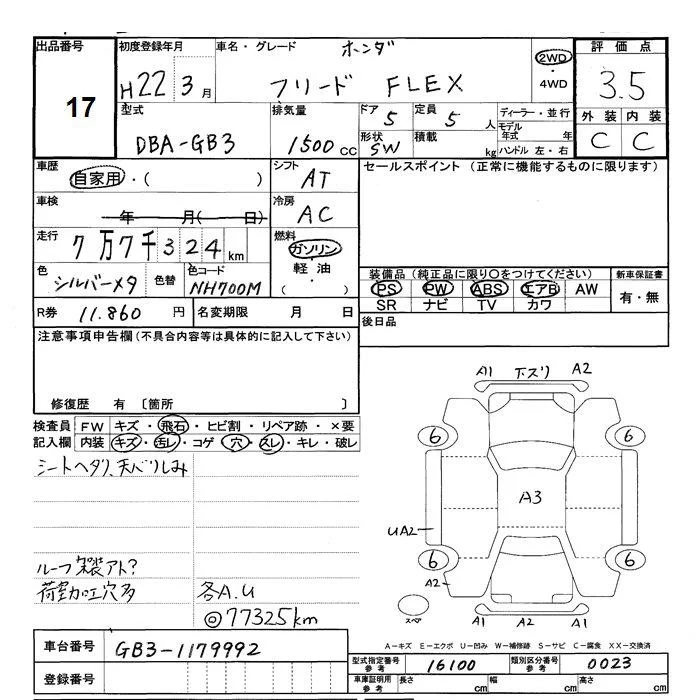 出品番号
17
初度登録年月
H22 3 月
車名・グレード
ホンダ
フリード FLEX
2WD
・
4WD
評価点
3.5
外装 内装
C C
型式
DBA-GB3
排気量
1500 cc
ドア
5
定員
5 人
形状
SW
積載
kg
ディーラー・並行
モデル年式 年
ハンドル 左・右
車歴
自家用・( )
シフト
AT
車検
年 月( 日)
冷房
AC
走行
7万7千324 km
燃料
ガソリン
・
軽油
・
( )
色
シルバーメタ
色替
色コード
NH700M
R券 11.860 円
名変期限 月 日
セールスポイント (正常に機能するものに限ります)
装備品 (純正品に限り○をつけてください)
PS PW ABS エアB AW
SR ナビ TV カワ
新車保証書
有・無
後日品
注意事項申告欄(不具合内容等は具体的に記入して下さい)
修復歴 有 〔箇所 〕
検査員記入欄
FW キズ・飛石・ヒビ割・リペア跡・×要
内装 キズ・汚レ・コゲ・穴・スレ・キレ・破レ
シートヘタリ、天バリしみ
ルーフ塗装アト?
荷室加工穴多
各A.U
◎77325km
A1 下スリ A2
6 6
A3
UA2
6 6
A2
スペア
A1 A2 A1
A-キズ E-エクボ U-凹み W-補修跡 S-サビ C-腐食 XX-交換済
車台番号 GB3-1179992
登録番号
型式指定番号 参考 16100
類別区分番号 参考 0023
車庫証明用 参考
長さ cm
幅 cm
高さ cm